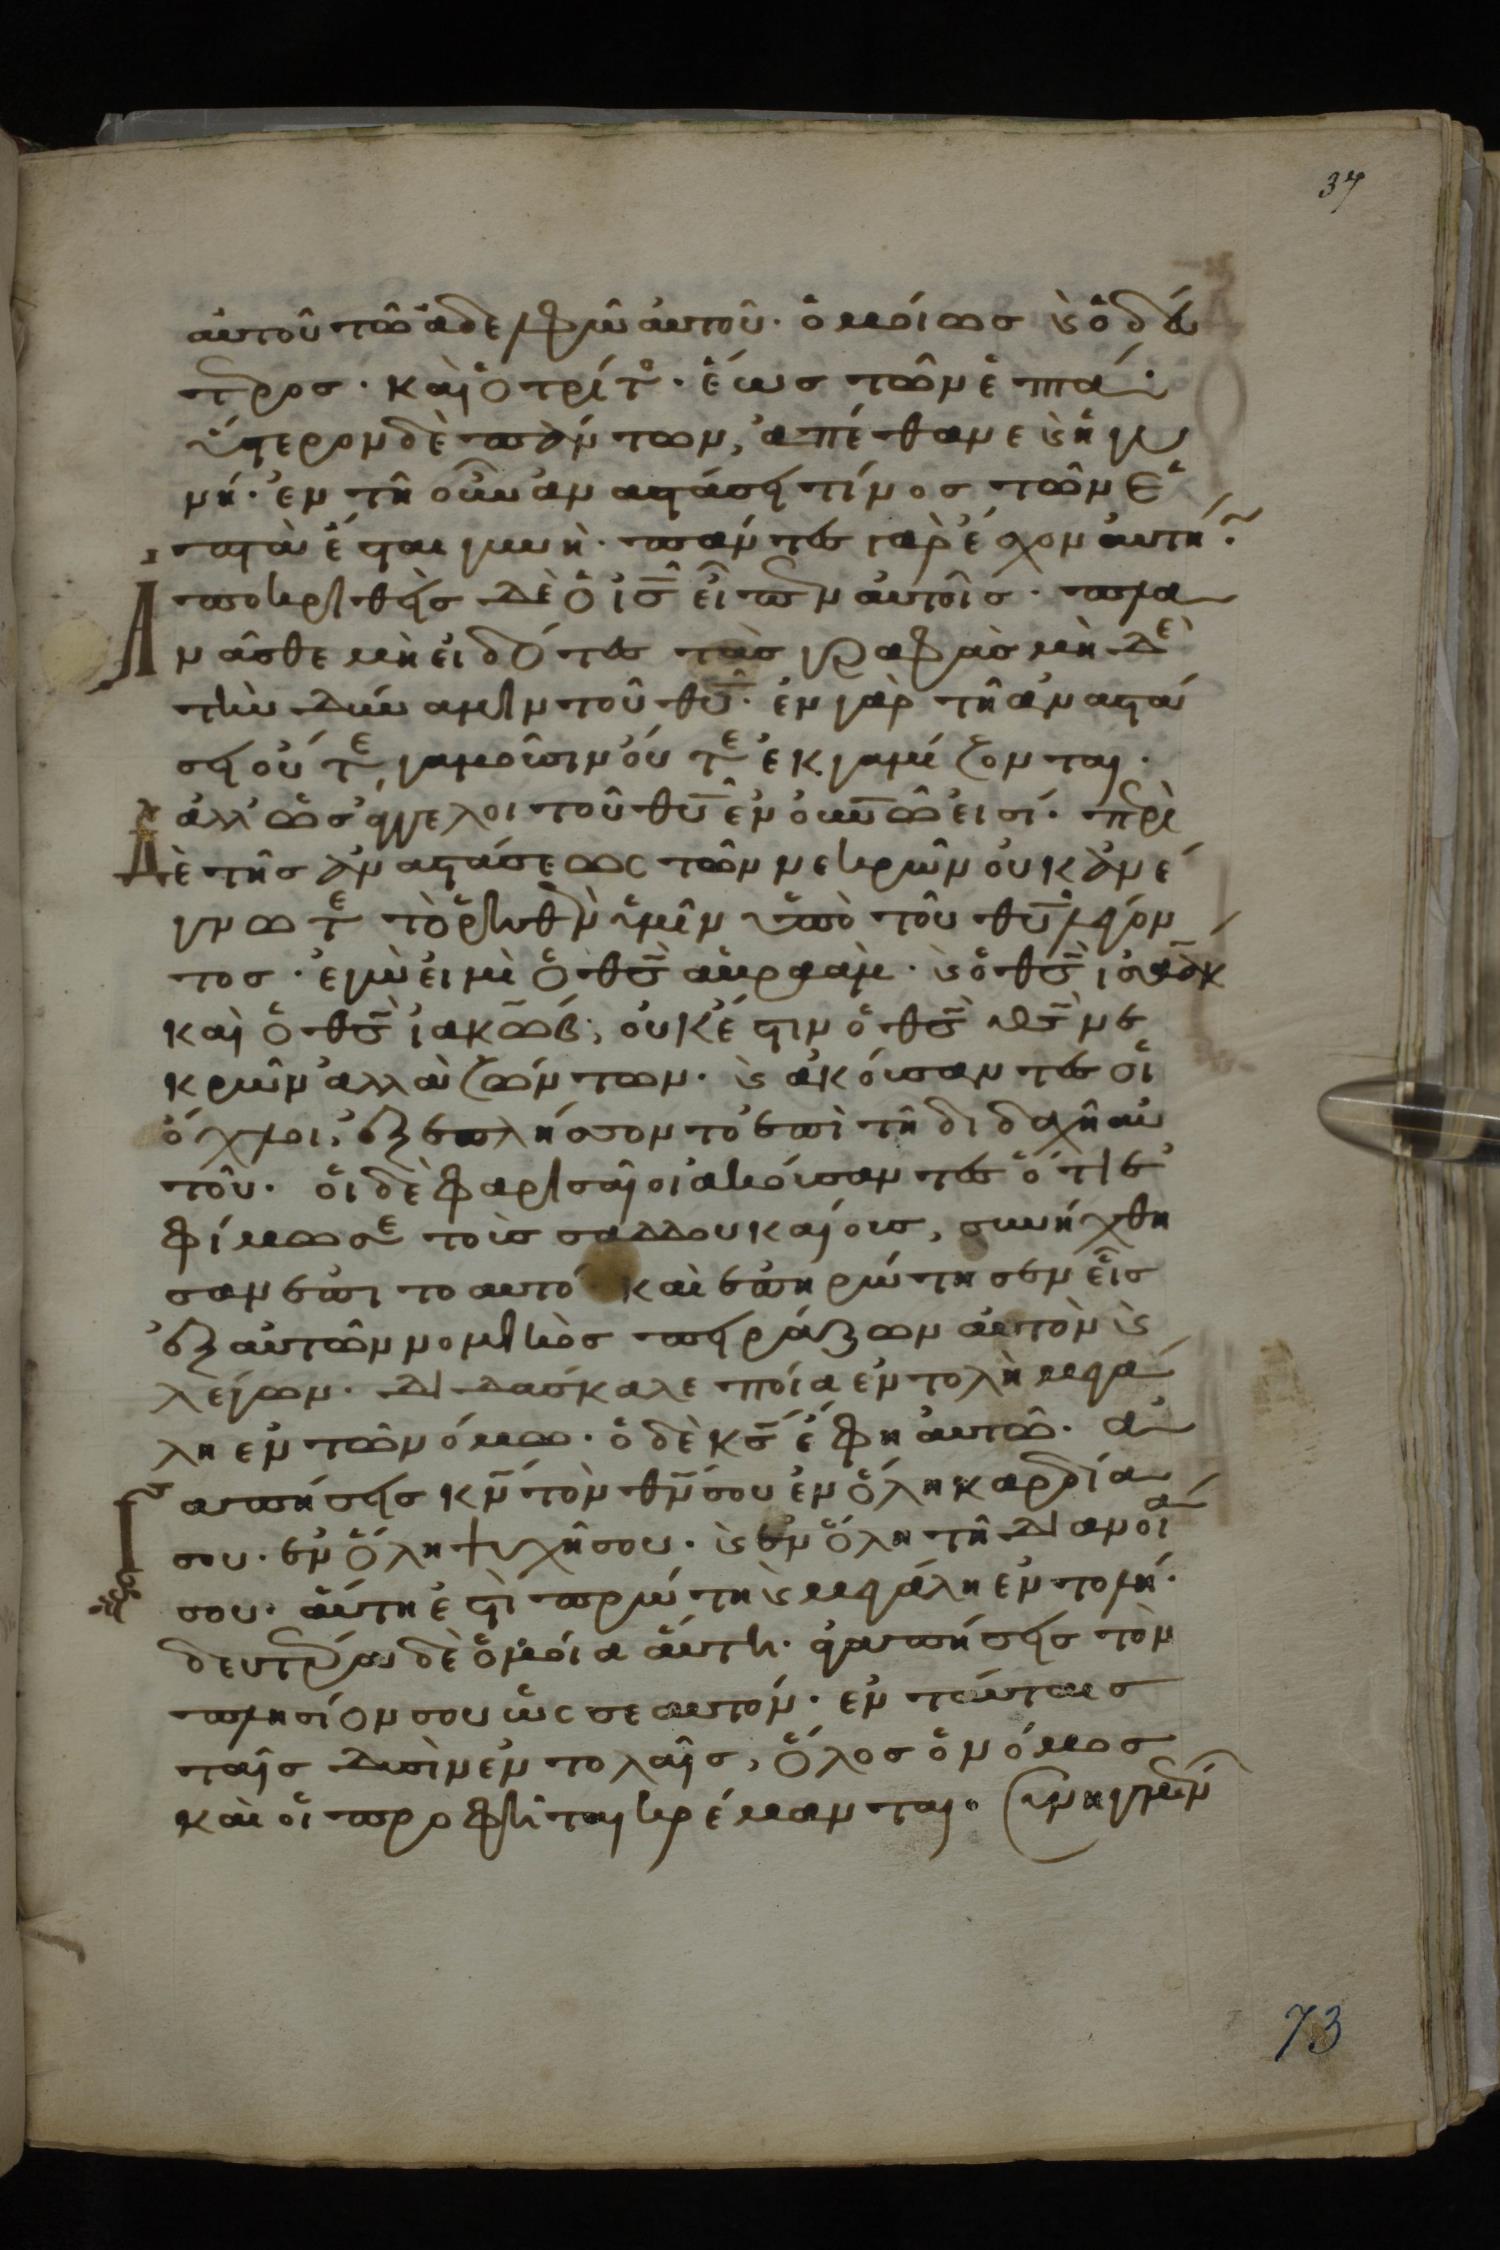 37
αυτοῦ τῶ ἀδελφῶ αυτοῦ· ὁμοίως κ ὁ δεύ
τερος· καὶ ὁ τρίτος· ἕως τῶν ἑπτά·
ὕστερον δὲ πάντων, ἀπέθανε κ ἡ γυ
νή· ἐν τῆ οὖν ἀναστάσει τίνος τῶν ἑ
πτὰ ἔσται γυνὴ· πάντες γὰρ ἔσχον αυτήν·
Αποκριθεὶς δὲ ὁ ις εἶπεν αὐτοῖς· πλα
νᾶσθε μὴ εἰδότες τὰς γραφὰς μὴ δὲ
τὴν δύναμιν τοῦ θυ· ἐν γὰρ τῆ ἀναστά
σει οὔτε γαμοῦσιν οὔτε ἐκγαμίζονται·
ἀλλ' ὡς ἄγγελοι τοῦ θυ ἐν ουνω εισί· περὶ
Δὲ τῆς ἀναστάσεως τῶν νεκρῶν οὐκ ἀνέ
γνωτε τὸ ῥηθὲν ὑμῖν ὑπὸ τοῦ θυ λέγον
τος· ἐγὼ εἰμὶ ὁ θς ἀβραὰμ· κ ὁ θς ἰσαὰκ
καὶ ὁ θς ἰακὼβ; οὐκ έστιν ὁ θς θς νε
κρῶν ἀλλὰ ζώντων· κ ἀκούσαντες οἱ
όχλοι, ἐξεπλήσσοντο ἐπὶ τῆ διδαχῆ αυ
τοῦ· οἱ δὲ φαρισαῖοι ἀκούσαντες ὅτι ἐ
φίμωσε τοὺς σαδδουκαίους, συνήχθη
σαν ἐπι το αυτό· καὶ ἐπηρώτησεν εἷς
ἐξ αὐτῶν νομικὸς πειράζων αὐτὸν κ
λέγων· διδάσκαλε ποία ἐντολὴ μεγά
λη ἐν τῶ νόμω· ὁ δὲ κς έφη αὐτῶ· α
Γαπήσεις κν τὸν θν σου ἐν ὅλη καρδία
σου· ἐν ὅλη ψυχῆ σου· κ ἐν ὅλη τῆ διανοία
σου· αὕτη ἐστὶ πρώτη κ μεγάλη ἐντολή·
δευτέρα δὲ ὁμοία αὕτη· ἀγαπήσεις τὸν
πλησίον σου ὡς σεαυτόν· ἐν ταύταις
ταῖς δυσὶν ἐντολαῖς, ὅλος ὁ νόμος
καὶ οἱ προφῆται κρέμανται·
73